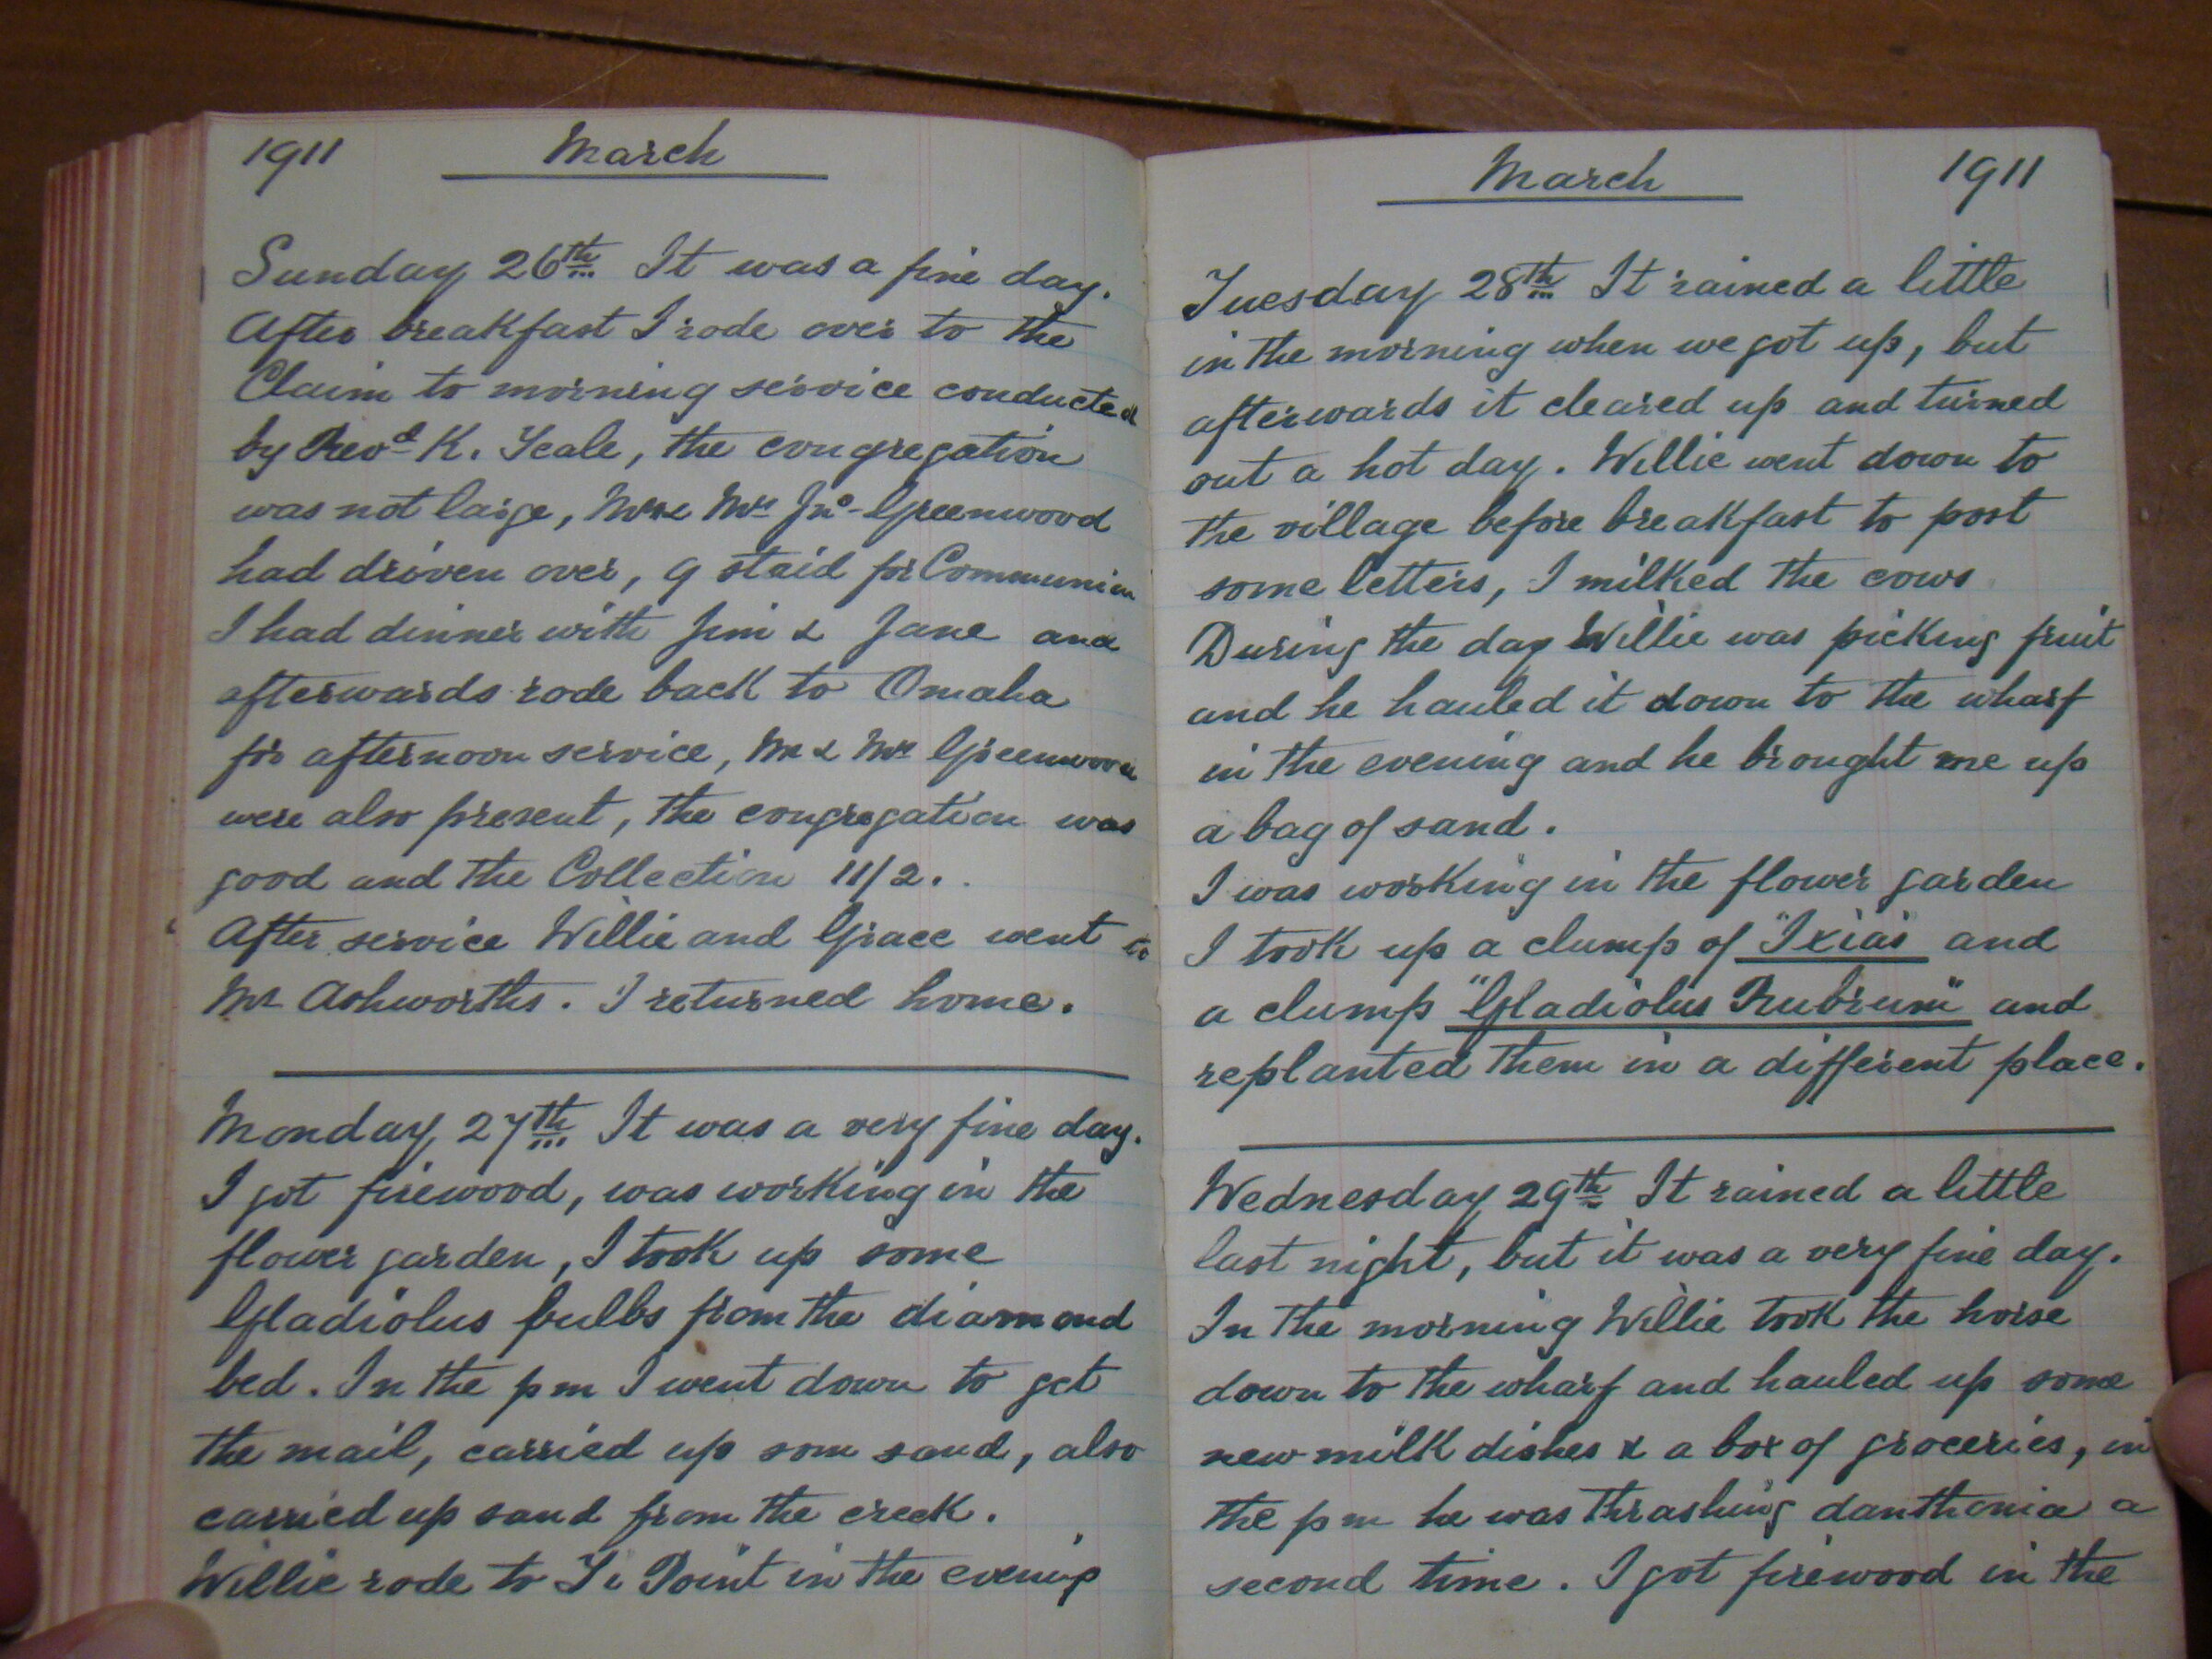 1911 March
Sunday 26th It was a fine day.
After breakfast I rode over to the
Claim to morning service conducted
by Revd K. Teale, the congregation
was not large, Mr & Mrs Jno Greenwood
had driven over, I staid for Communion
I had dinner with Jim & Jane and
afterwards rode back to Omaha
for afternoon service, Mr & Mrs Greenwood
were also present, the congregation was
good and the Collection 11/2.
After service Willie and Grace went to
Mr Ashworths. I returned home.
Monday 27th It was a very fine day.
I got firewood, was working in the
flower garden, I took up some
Gladiolus bulbs from the diamond
bed. In the pm I went down to get
the mail, carried up som sand, also
carried up sand from the creek.
Willie rode to Ti Point in the evening
March 1911
Tuesday 28th It rained a little
in the morning when we got up, but
afterwards it cleared up and turned
out a hot day. Willie went down to
the village before breakfast to post
some letters, I milked the cows
During the day Willie was picking fruit
and he hauled it down to the wharf
in the evening and he brought me up
a bag of sand.
I was working in the flower garden
I took up a clump of "Ixias" and
a clump "Gladiolus Rubrum" and
replanted them in a different place.
Wednesday 29th It rained a little
last night, but it was a very fine day.
In the morning Willie took the horse
down to the wharf and hauled up some
new milk dishes & a box of groceries, in
the pm he was thrashing danthonia a
second time. I got firewood in the